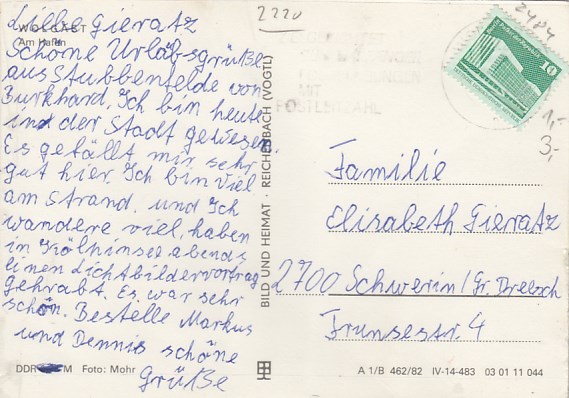 2220
2484
WOLGAST
Am Hafen
Liebe Gieratz
Schöne Urlabsgrüße
aus Stubbenfelde von
Burkhard. Ich bin heute
in der Stadt gewesen
Es gefällt mir sehr
gut hier. Ich bin viel
am Strand. und Ich
wandere viel, haben
in Kölpinsee abends
einen Lichtbildervortrag
gehabt. Es war sehr
schön. Bestelle Markus
und Dennis schöne
Grüße
DDR M Foto: Mohr
BILD UND HEIMAT · REICHENBACH (VOGTL)
10
1,-
3,-
POSTLEITZAHL
Familie
Elisabeth Gieratz
2700 Schwerin/Gr. Dreesch
Frunsestr. 4
A 1/B 462/82 IV-14-483 03 01 11 044